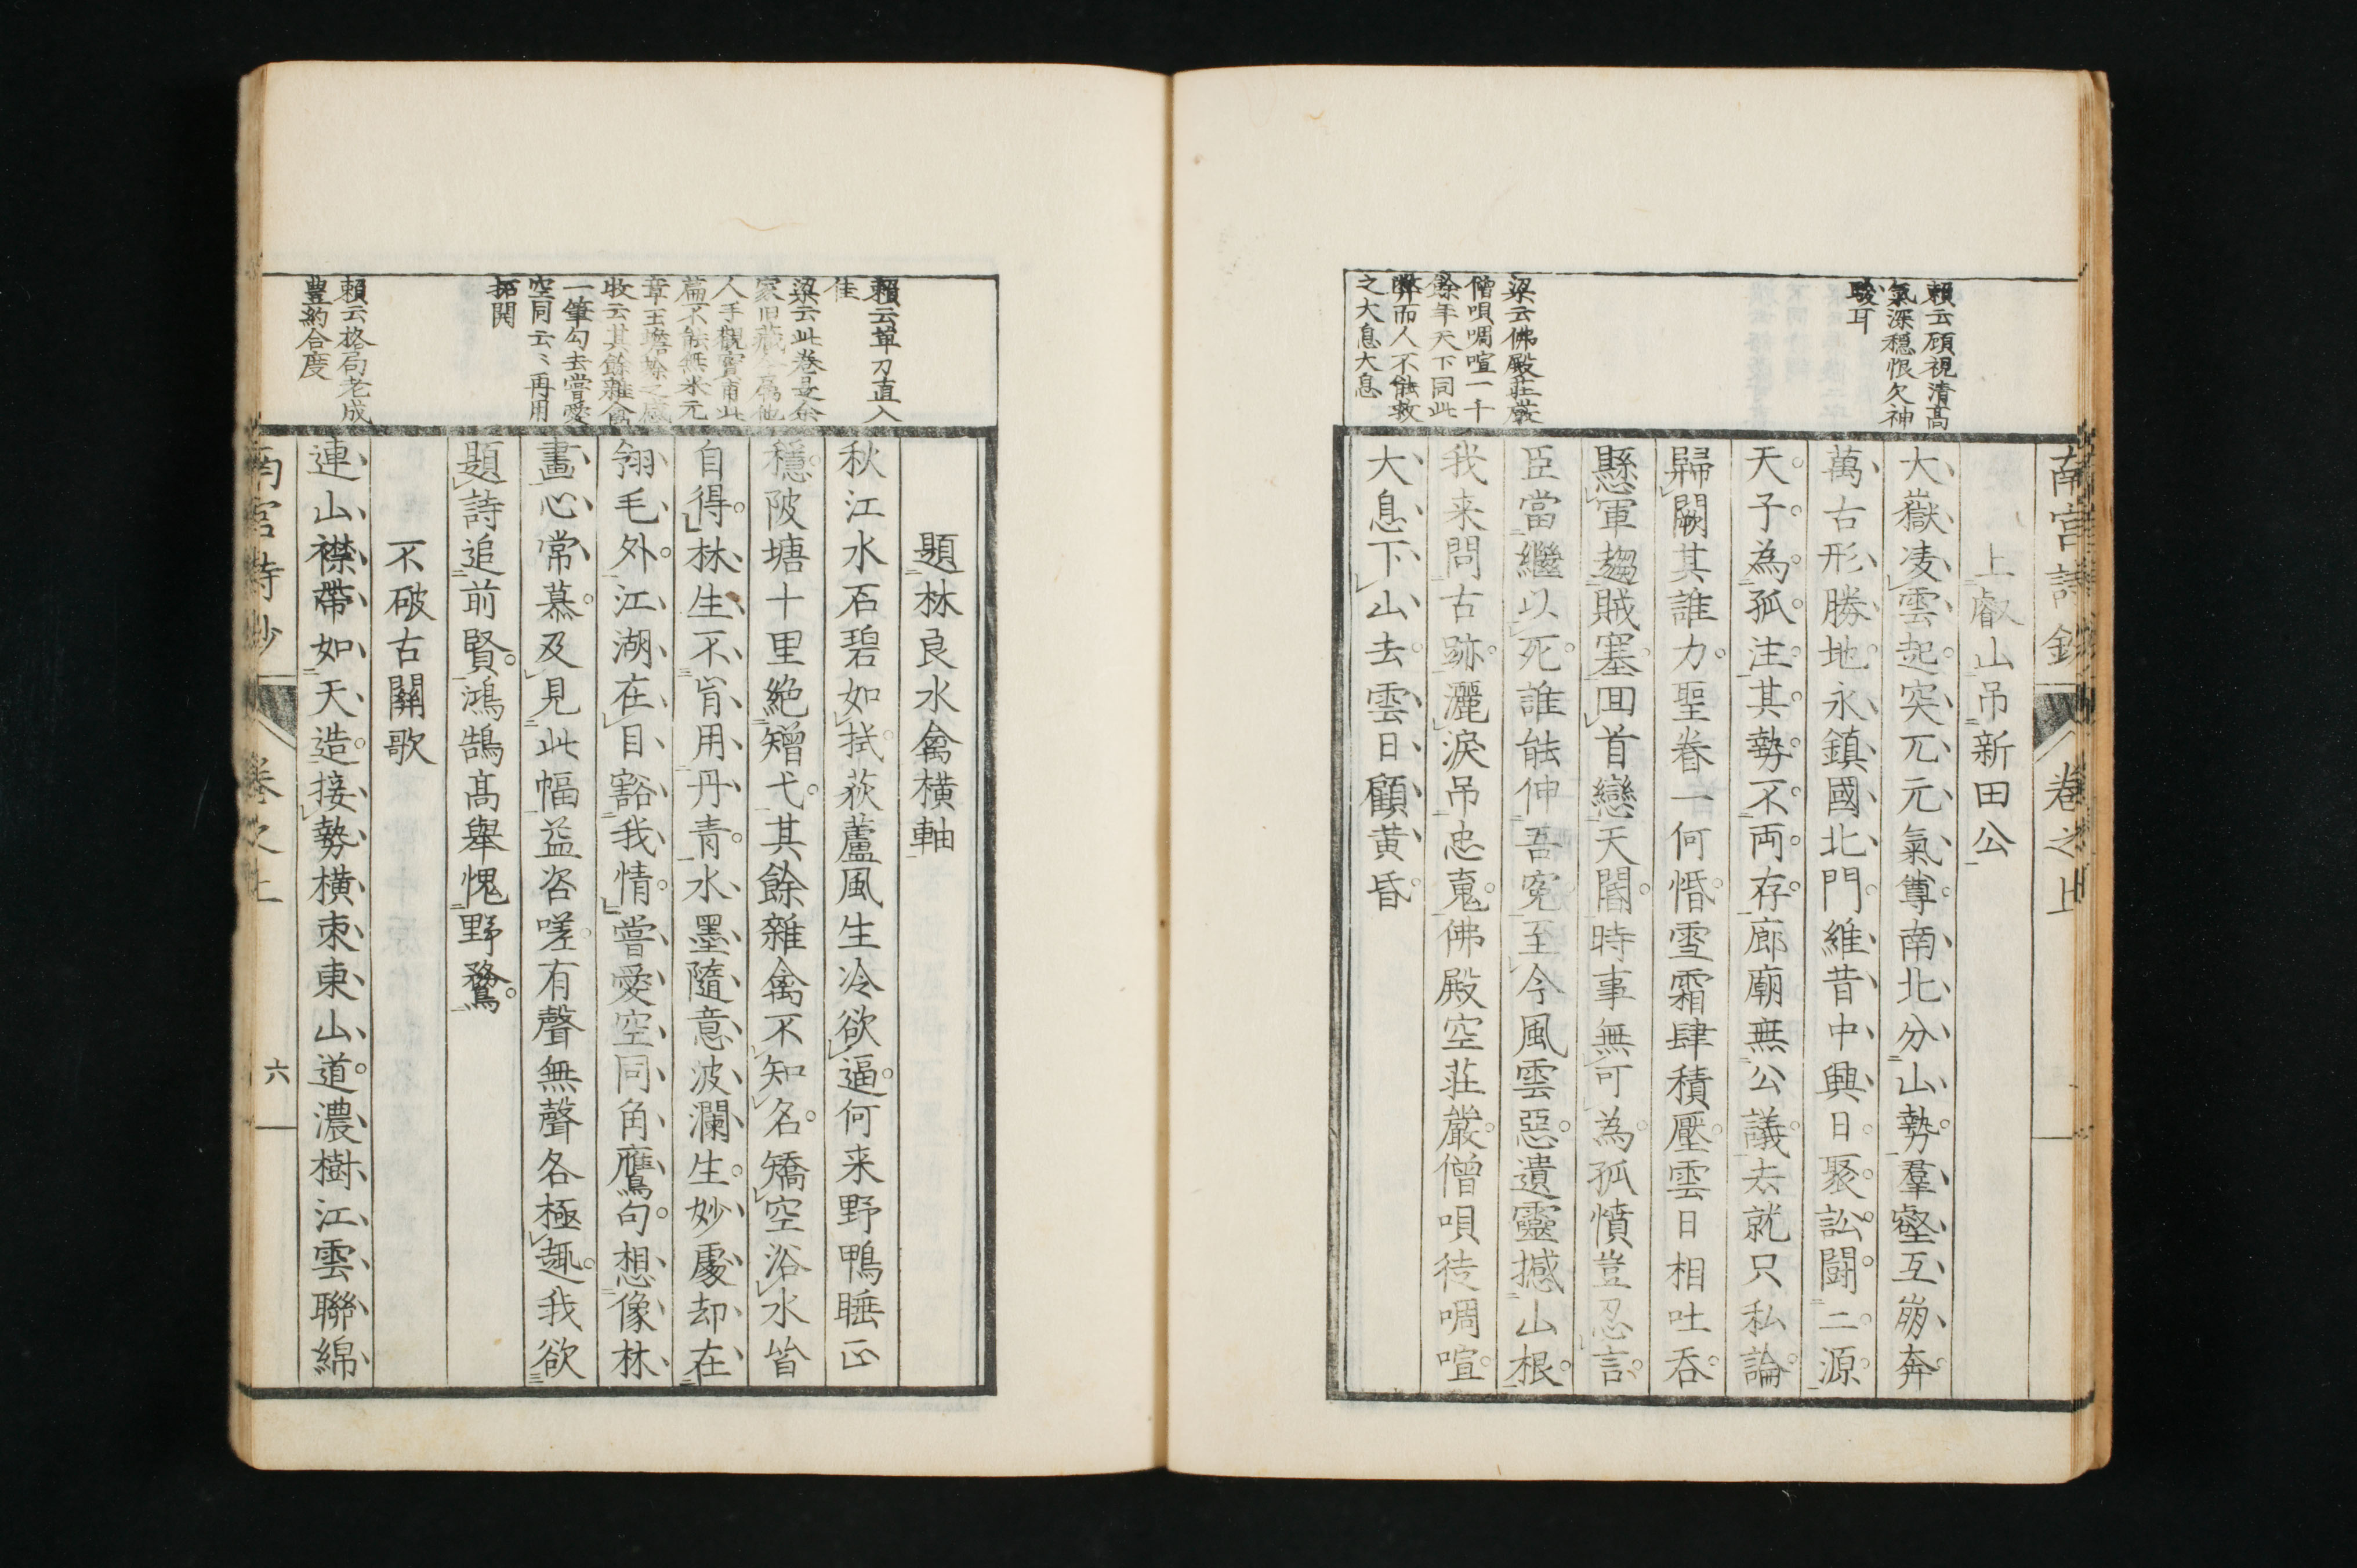 南宮詩鈔 卷之上
頼云顧視清髙
氣深穏恨欠神
駿耳
梁云佛殿莊嚴
僧唄啁喧一千
餘年天下同此
弊而人不能救
之大息大息
上叡山吊新田公
大嶽凌雲起突兀元氣尊南北分山勢羣壑互崩奔
萬古形勝地永鎮國北門維昔中興日聚訟鬪二源
天子為孤注其勢不兩存廊廟無公議去就只私論
歸闕其誰力聖眷一何惛雪霜肆積壓雲日相吐吞
懸軍趨賊塞回首戀天閽時事無可為孤憤豈忍言
臣當繼以死誰能伸吾寃至今風雲惡遺靈撼山根
我来問古跡灑淚吊忠䰟佛殿空莊嚴僧唄徒啁喧
大息下山去雲日顧黄昏
頼云單刀直入
佳
梁云此卷是余
家旧藏今属他
人手觀實甫此
篇不能無米元
章王蟾蜍之感
收云其餘雜禽
一筆勾去嘗愛
空同云〻再用
拓開
頼云格局老成
豊約合度
題林良水禽横軸
秋江水石碧如拭荻蘆風生冷欲逼何来野鴨睡正
穏陂塘十里絶矰弋其餘雜禽不知名矯空浴水皆
自得林生不肯用丹青水墨隨意波瀾生妙處却在
翎毛外江湖在目豁我情嘗愛空同角鷹句想像林
畫心常慕及見此幅益咨嗟有聲無聲各極趣我欲
題詩追前賢鴻鵠髙舉愧野鶩
不破古關歌
連山襟帶如天造接勢横束東山道濃樹江雲聯綿
南宮詩鈔 卷之上 六